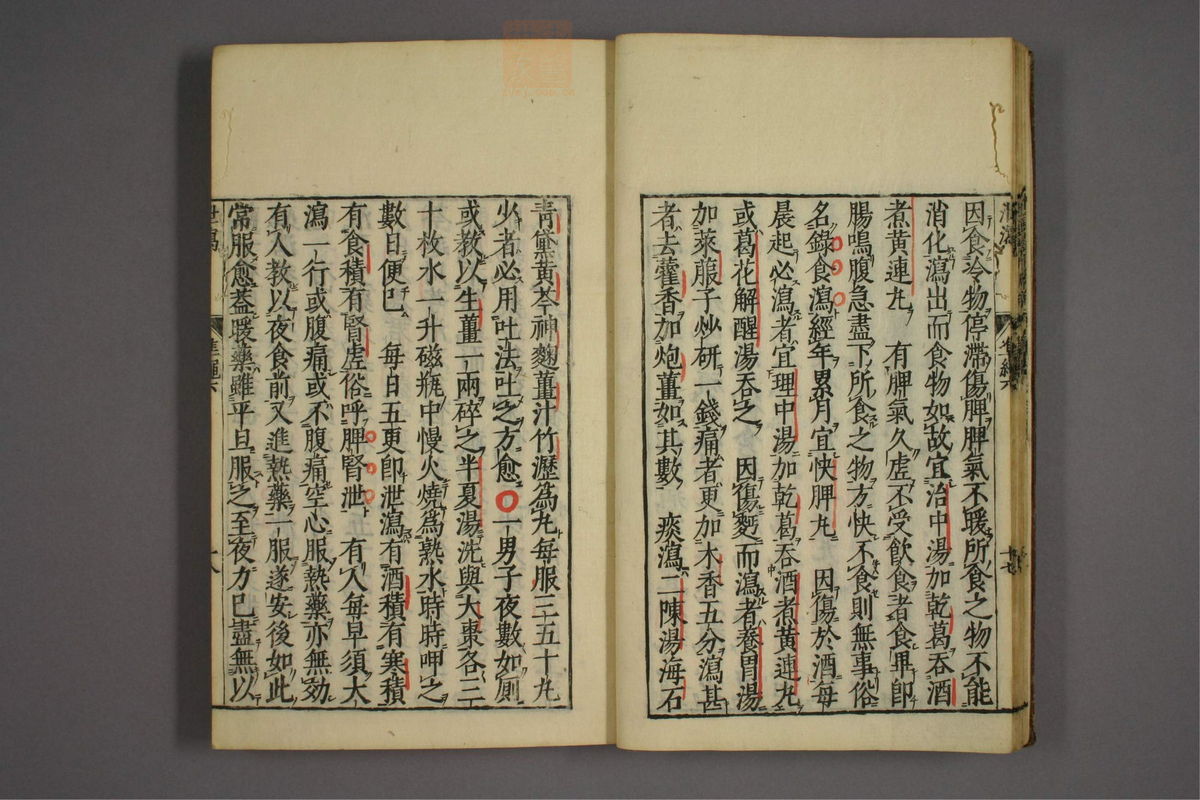 因食冷物停滯傷脾脾氣不暖所食之物不能
消化瀉出而食物如故宜治中湯加乾葛吞酒
煮黃連丸　有脾氣久虛不受飲食者食畢卽
腸鳴腹急盡下所食之物方快不食則無事俗
名錄食瀉經年累月宜快脾丸　因傷於酒每
晨起必瀉者宜理中湯加乾葛吞酒煮黃連丸
或葛花解酲湯吞之　因傷麪而瀉者養胃湯
加萊菔子炒研一錢痛者更加木香五分瀉甚
者去藿香加炮薑如其數　痰瀉二陳湯海石
青黛黃芩神麴薑汁竹瀝為丸每服三五十丸
少者必用吐法吐之方愈○一男子夜數如厠
或教以生薑一兩碎之半夏湯洗與大棗各三
十枚水一升磁瓶中慢火燒為熟水時時呷之
數日便已　每日五更卽泄瀉有酒積有寒積
有食積有腎虛俗呼脾腎泄　有人每早須大
瀉一行或腹痛或不腹痛空心服熱藥亦無効
有人教以夜食前又進熱藥一服遂安後如此
常服愈蓋暖藥雖平旦服之至夜力已盡無以